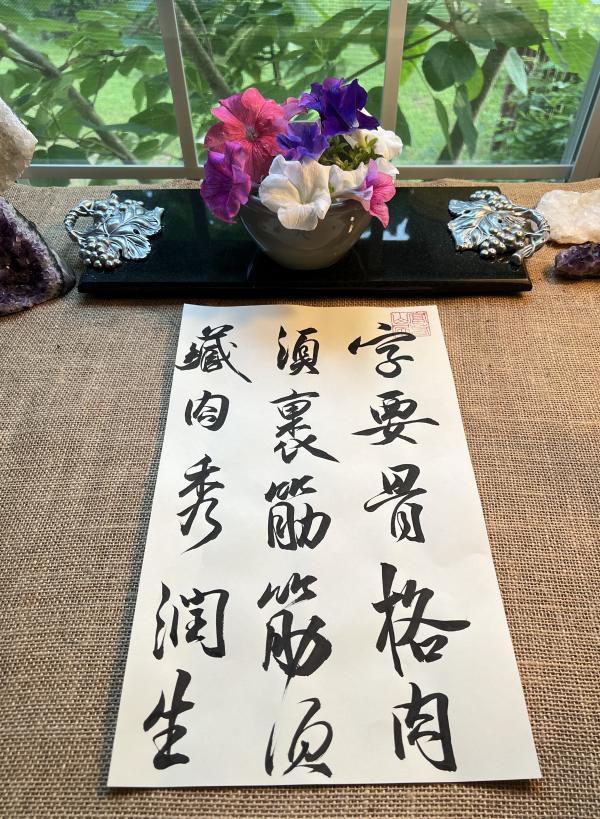 字要骨格肉
須裹筋筋須
藏肉秀潤生